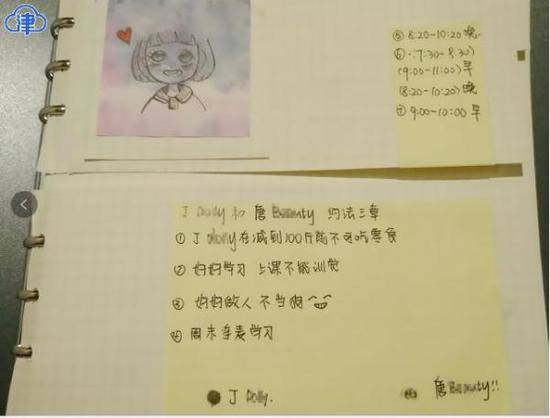 津
⑤ 8:20-10:20 晚
⑥ (7:30-8:30)
(9:00-11:00) 早
(8:20-10:20) 晚
⑦ 9:00-10:00 早
J 和 唐 约法三章
① J 在减到100斤前不可吃零食
② 好好学习 上课不能训觉
③ 好好做人 不当狗
④ 周末连麦学习
J Dolly.
唐Beauty!!